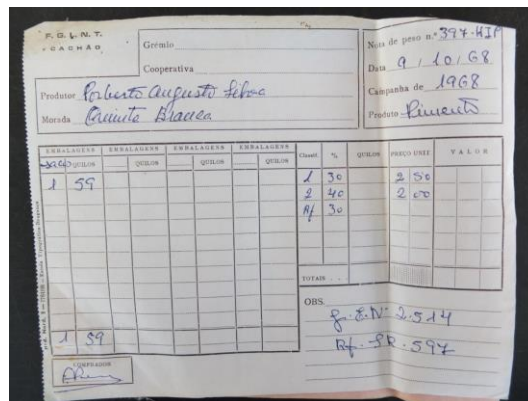 F. G. L. N. T.
CACHÃO
Grémio
Cooperativa
Produtor Augusto Lisboa
Morada Quinta Branca
Nota de peso n.º 397-HIP
Data 9 / 10 / 68
Campanha de 1968
Produto Pimento
EMBALAGENS EMBALAGENS EMBALAGENS EMBALAGENS
QUILOS QUILOS QUILOS QUILOS
Classif. % QUILOS PREÇO UNIT. VALOR
1 59
1 30 2 50
2 40 2 00
Rf 30
TOTAIS . .
OBS.
g. E.N. 2.514
Rf. SR. 597
1 59
COMPRADOR